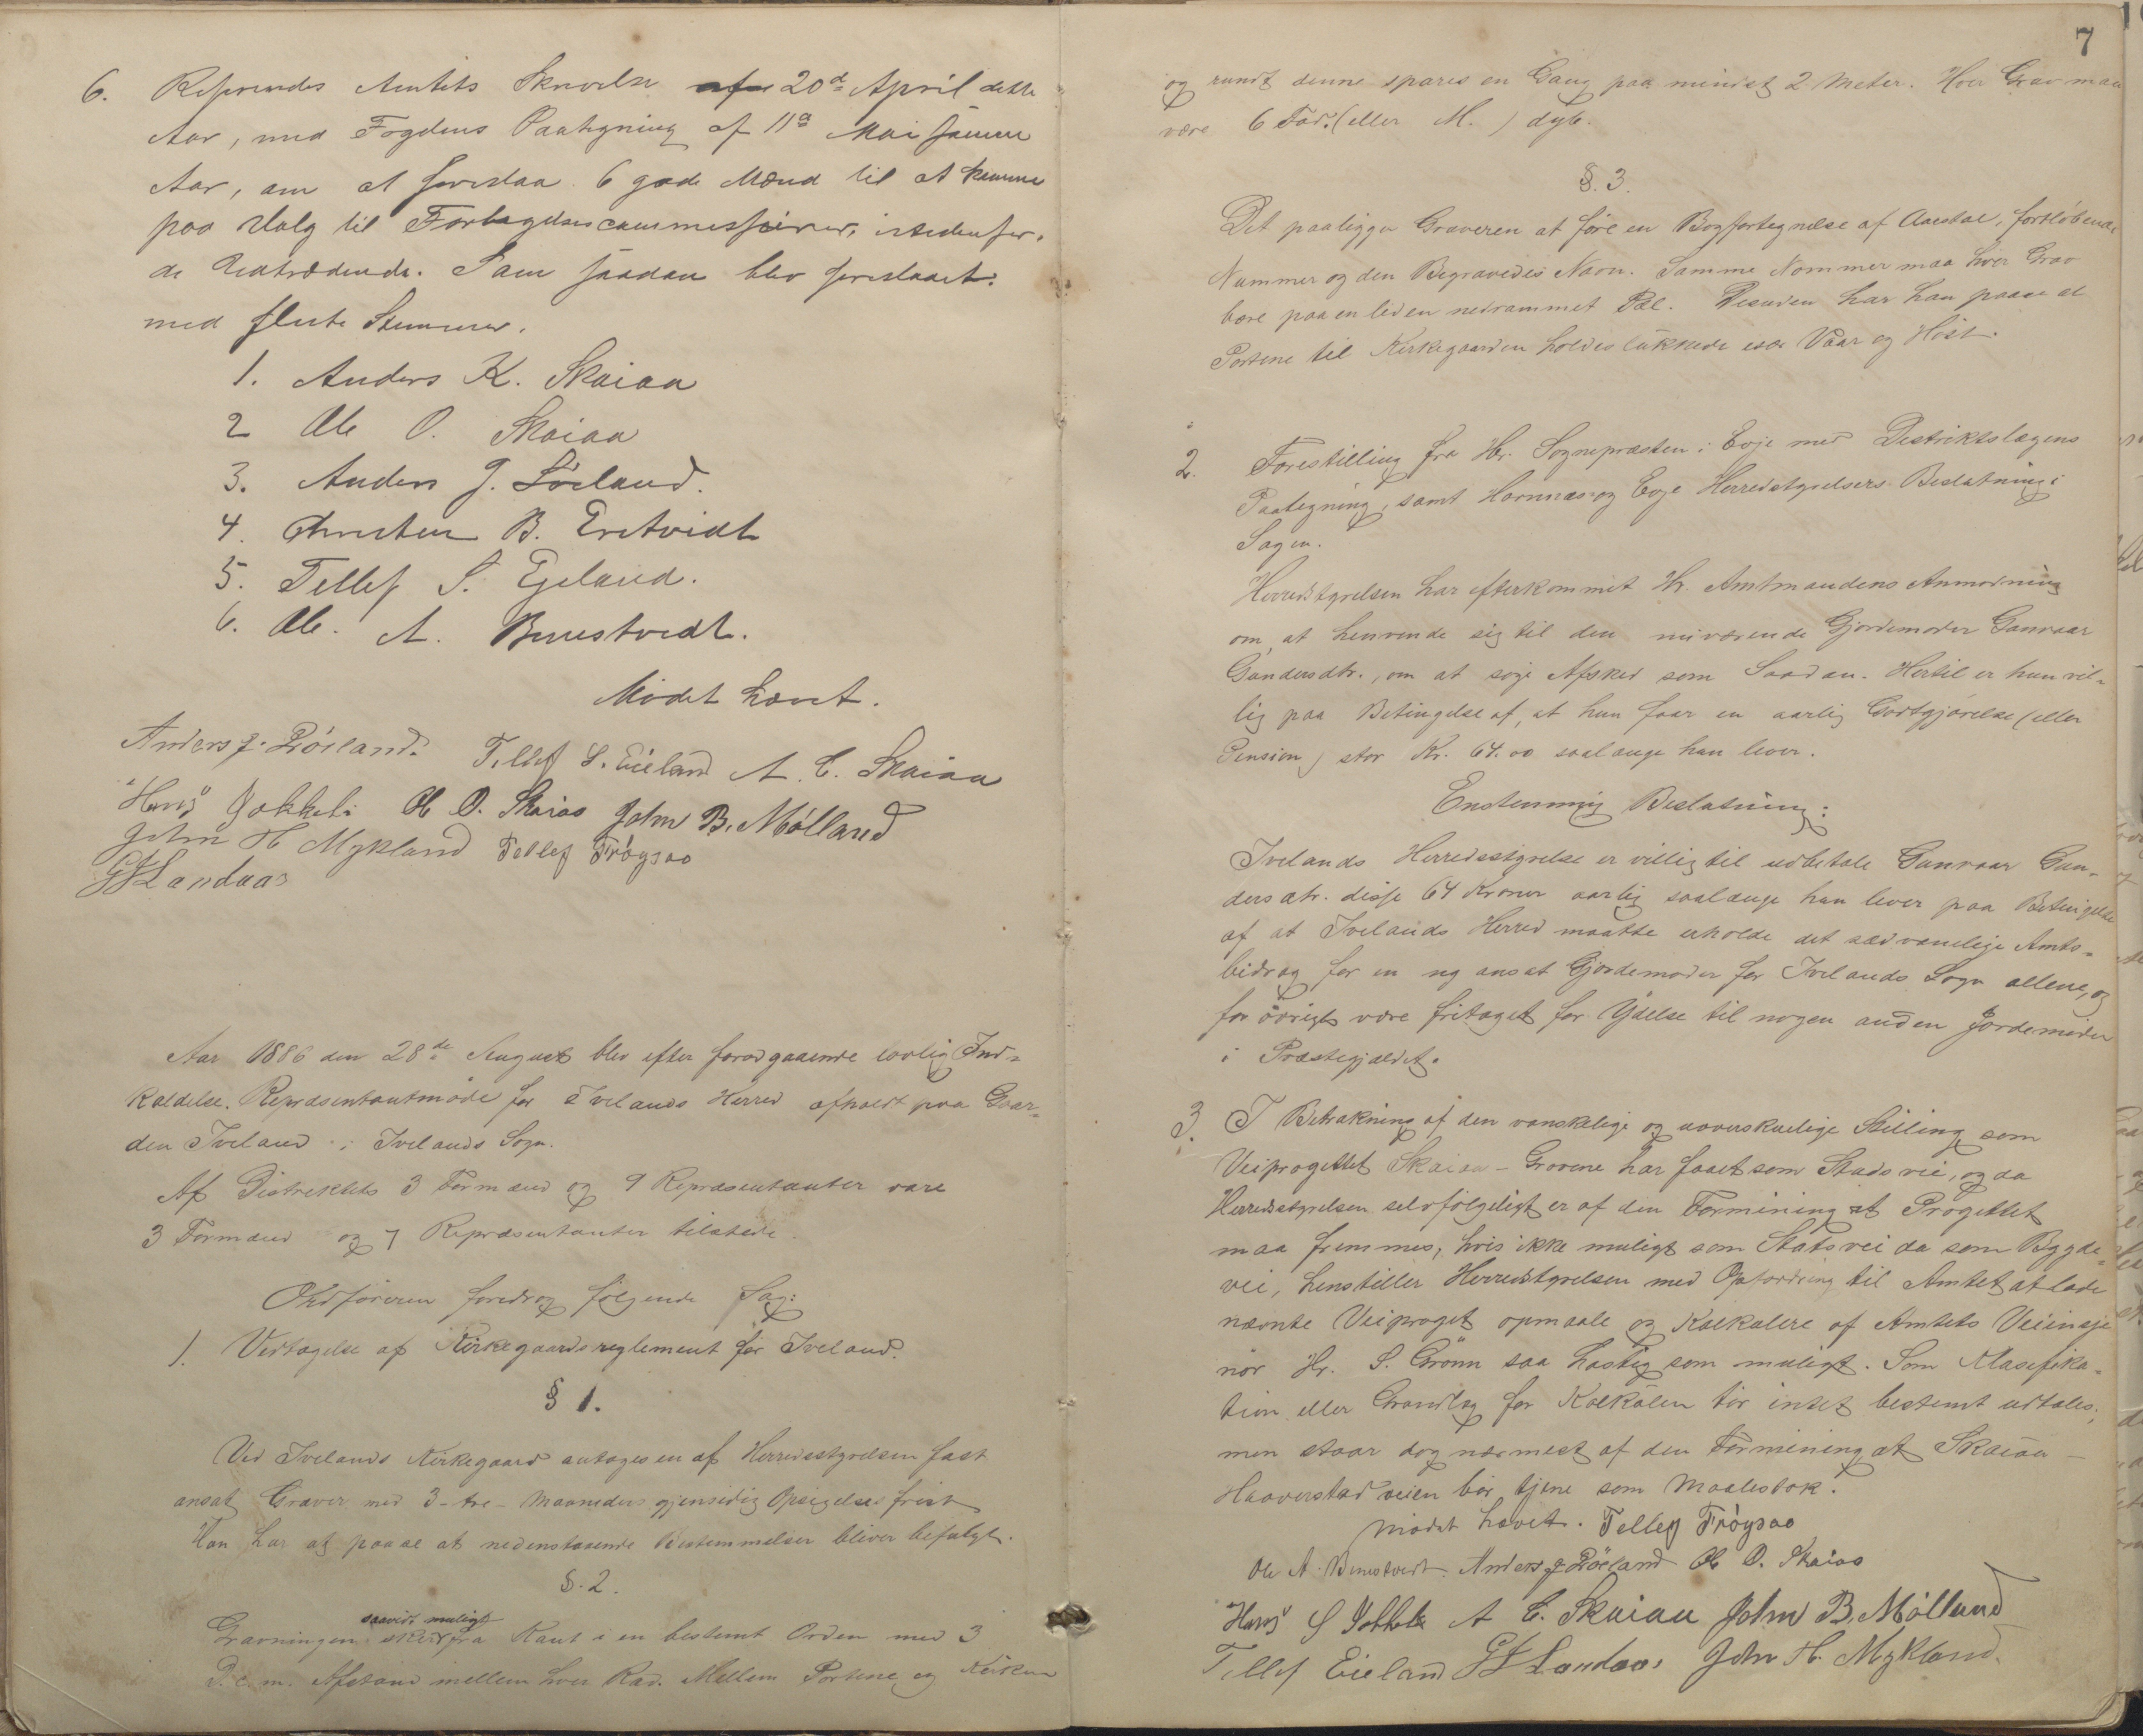 6. Refereredes Amtets Skrivelse af 20d April dette
Aar, med Fogdens Paategning af 11a Mai samme
Aar, om at foreslaa 6 gode Mænd til at komme
paa Valg til Forligelsescommissairer, istedenfor
de Udtrædende. Som saadan blev foreslaaet:
med fleste Stemmer.
1. Anders K. Skaiaa
2 Ole O. Skaiaa
3. Anders J. Röiland.
4. Christen B. Eretveidt
5. Tellef S. Eieland.
6. Ole. A. Bennestvedt.
Mödet hævet.
Anders J. Röiland. Tellef S. Eieland A. C. Skaiaa
Hans Jokkel Ole O. Skaiaa John B. Mölland
John H Mykland Tellef Fröysaa
GJ Landaas
Aar 1886 den 28de August blev efter foradgaaende lovlig Ind-
kaldelse. Repræsentantmöde for Ivelands Herred afholdt paa Gaar-
den Iveland i Ivelands Sogn.
Af Distriktets 3 Formænd og 9 Repræsentanter vare
3 Formænd og 7 Repræsentanter tilstede.
Ordföreren foredrog fölgende Sag:
1. Vedtagelse af Kirkegaardsreglement for Iveland.
§ 1.
Ved Ivelands Kirkegaard antages en af Herredsstyrelsen fast
ansat Graver med 3-tre- Maaneders gjensidig Opsigelsesfrist
Han har at paase at nedenstaaende Bestemmelser bliver befulgt.
§. 2.
Gravningen skeer saavidt muligt fra Kant i en bestemt Orden med 3
D.c.m. Afstand mellem hver Rad. Mellem Portene og Kirken
7
og rundt denne spares en Gang paa mindst 2 Meter. Hver Grav maa
være 6 Fod. (eller M. ) dyb.
§. 3.
Det paaligger Graveren at före en Bogfortegnelse af Aarstal, fortlöbende
Nummer og den Begravedes Navn. Samme Nommer maa hver Grav
bære paa en liden nedrammet Pæl. Desuden har han paase at
Portene til Kirkegaarden holdes lukkede især Vaar og Höst.
2. Forestilling fra Hr. Sognepræsten i Evje med Distriktslægens
Paategning, samt Hornnæs og Evje Herredstyrelsers Beslutning i
Sagen.
Herredstyrelsen har efterkommet Hr. Amtmandens Anmodning
om, at henvende sig til den nuværende Gjordemoder Gunvaar
Gundersdtr., om at söge Afsked som Saadan. Hertil er hun vil-
lig paa Betingelse af, at hun faar en aarlig Godtgjörelse (eller
Pension) stor Kr. 64.00 saalænge hun lever.
Enstemmig Beslutning:
Ivelands Herredsstyrelse er villig til udbetale Gunvaar Gun-
dersdtr. disse 64 Kroner aarlig saalænge hun lever paa Betingelse
af at Ivelands Herred maatte erholde det sædvanelige Amts-
bidrag for en ny ansat Gjordemoder for Ivelands Sogn allene, og
for övrigt være fritaget for Ydelse til nogen anden Jordemoder
i Præstegjældet.
3. I Betrakning af den vanskelige og uoverskuelige Stilling som
Veiprogettet Skaiaa-Grovene har faaet som Stads vei, og da
Herredsstyrelsen selvfölgeligt er af den Formining at Progettet
maa fremmes, hvis ikke muligt som Statsvei da som Bygde-
vei, henstiller Herredstyrelsen med Opfordring til Amtet at lade
nævnte Veiproget opmaale og Kalkulere af Amtets Veiinsje
nör Hr. S. Grönn saa hastig som muligt. Som Klasefika-
tion eller Grundlag for Kalkülen tör intet bestemt udtales,
men staar dog nærmest af den Formining at Skaiaa-
Haaverstad veien bör tjene som Maalestok.
Mödet hævet. Tellef Fröysaa
Ole A. Bennestvedt. Anders J Röiland Ole O. Skaiaa
Hans S Jokkel A C. Skaiaa John B. Mölland
Tellef Eieland GJ Landaas John H. Mykland.